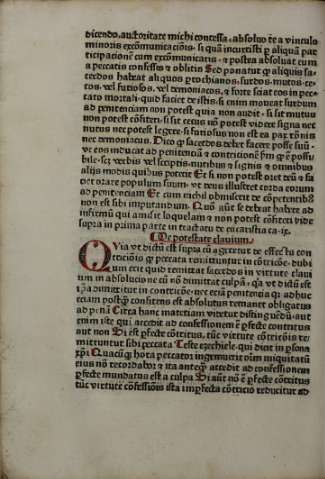 dicendo. auctoritate michi concessa. absoluo te a vinculo
minoris excōmunicaciōis. si quā incurristi ꝑ aliquam par
ticipationē cum excōmunicatis. ⁊ postea absoluat eum
a peccatis confessis ⁊ oblitis Sed ponatur ꝙ aliquis sa
cerdos habeat aliquos ꝑrochianos. surdos. mutos. ce⸗
cos. vel furiosos. vel demoniacos. ⁊ forte sciat eos in pec⸗
cato mortali. quid faciet de istis. si enim moueat surdum
ad penitenciam non potest quia non audit. si sit mutus
non potest cōfiteri. si sit cecus nō potest videre signa nec
nutus nec potest legere. si furiosus non est eā par rōnis
nec demoniacus. Dico ꝙ sacerdos debet facere posse suū.
vt eos inducat ad penitenciā ⁊ contricionē ꝓut ꝙ ē possi
bile. sꝫ verbis vel scriptis. nutibus ⁊ signis ⁊ omnibus
aliis modis quibus poterit Et si non potest oret deū ⁊ fa
ciat orare populum suum. vt deus illustret corda eorum
ad penitenciam Et cum nichil obmiserit de cōtingentib⁹
non est sibi imputandum. Quō aūt se debeat habere ad
infirmū qui amisit loquelam ⁊ non potest cōfiteri vide
supra in prima parte in tractatu de eucaristia ca. ix.
De potestate clauium.
QUia vt dictū est supra cū ageretur de effectu con
tricionis ꝙ peccata remittuntur in cōtricōe. dubi
um erit quid remittat sacerdos in virtute claui
um in absolucione cū nō dimittat culpā. qꝛ vt dictū est
ipā dimittitur in contricōne. nec eciā penitencia qꝛ adhuc
eciam postꝙ confitens est absolutus remanet obligatus
ad penā Circa hanc materiam videtur distinguēdū. aut
enim iste qui accedit ad confessionem ē ꝑfecte contritus
aut non Si est ꝑfecte cōtritus. tūc virtute cōtricōis re⸗
mittuntur sibi peccata Teste ezechiele. qui dicit in ꝑsona
xp̄i Quacūqꝫ hora peccator ingemuerit oīm iniquitatū
eius nō recordabor ⁊ ita anteqꝫ accedit ad confessionem
ꝑfecte mundatus est a culpa Si aūt nō ē ꝑfecte cōtritus
tūc virtute cōfessiōis ista imꝑfecta cōtricio reducitur ad